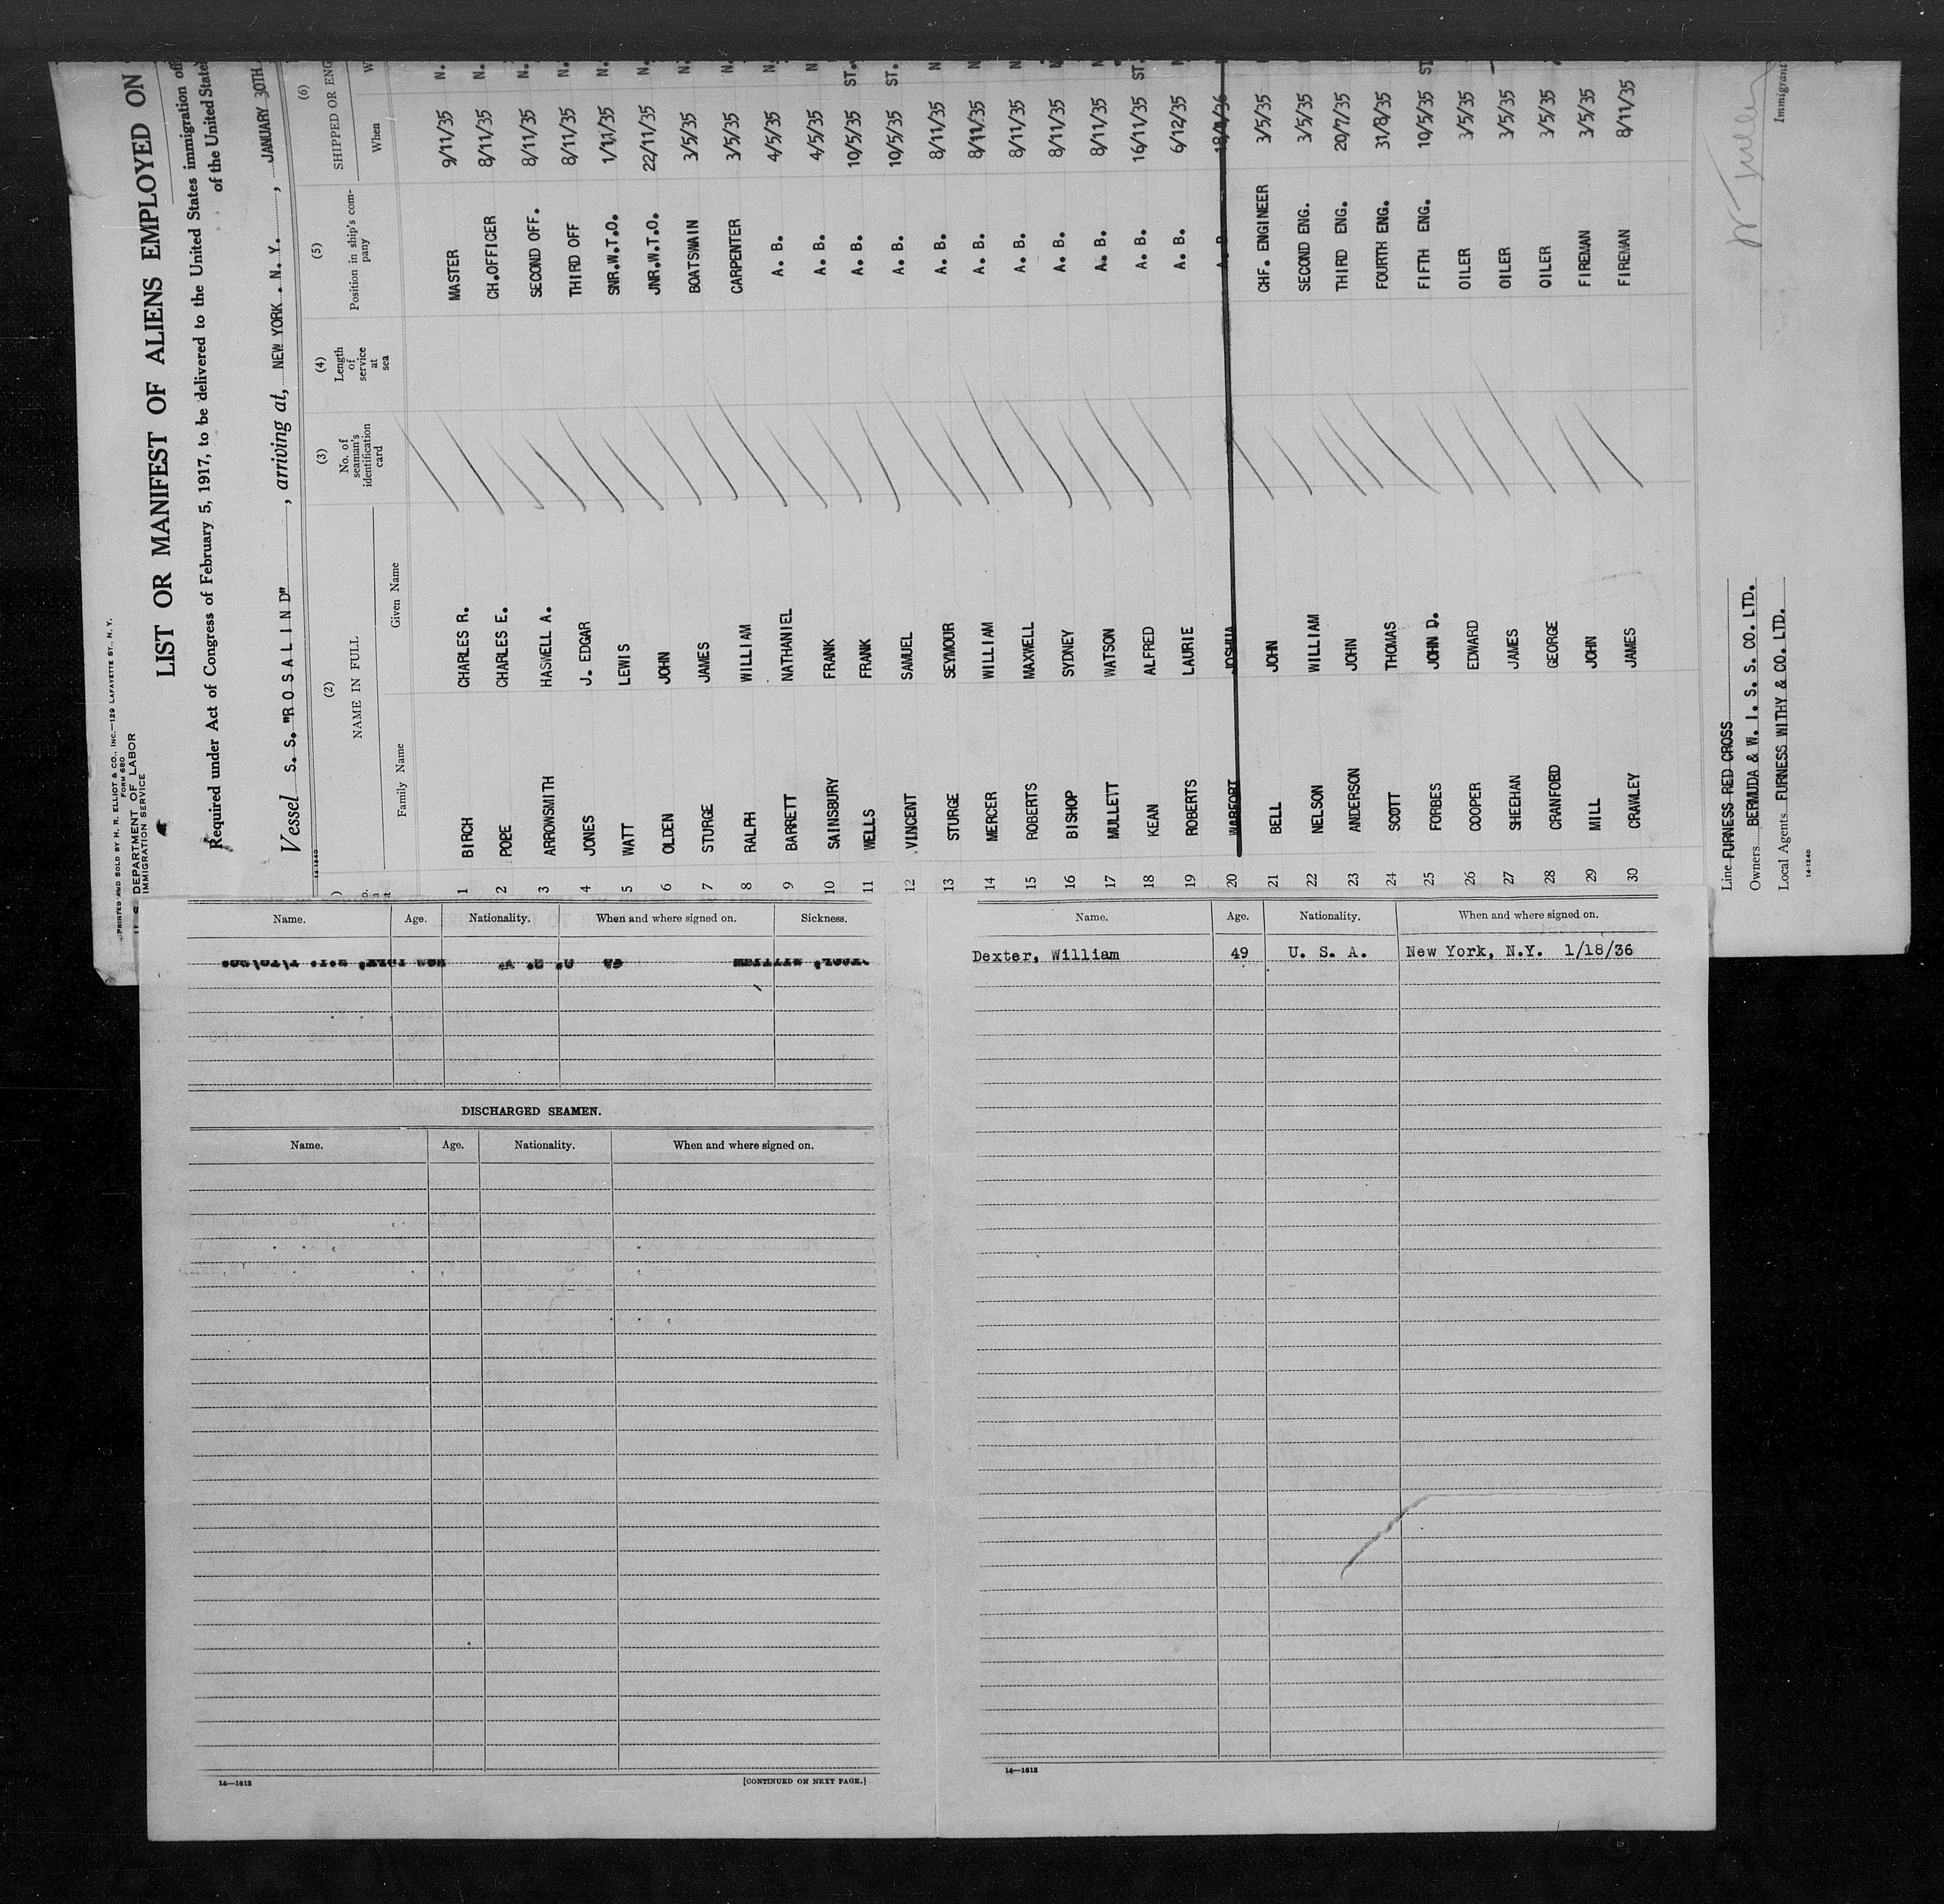 PRINTED AND SOLD BY H. R. ELLIOT & CO., INC.—129 LAFAYETTE ST., N. Y.
FORM 680
DEPARTMENT OF LABOR
IMMIGRATION SERVICE
LIST OR MANIFEST OF ALIENS EMPLOYED ON
Required under Act of Congress of February 5, 1917, to be delivered to the United States immigration
of the United
Vessel S. S. "R O S A L I N D", arriving at, NEW YORK . N. Y., JANUARY 30TH
14-1240
(2) (3) (4) (5) (6)
NAME IN FULL No. of seaman's identification card Length of service at sea Position in ship's company SHIPPED OR
Family Name Given Name When
1 BIRCH CHARLES R. MASTER 9/11/35 N.
2 POPE CHARLES E. CH.OFFICER 8/11/35 N.
3 ARROWSMITH HASWELL A. SECOND OFF. 8/11/35 N.
4 JONES J. EDGAR THIRD OFF 8/11/35 N.
5 WATT LEWIS SNR.W.T.O. 1/11/35 N.
6 OLDEN JOHN JNR.W.T.O. 22/11/35 N.
7 STURGE JAMES BOATSWAIN 3/5/35 N.
8 RALPH WILLIAM CARPENTER 3/5/35 N.
9 BARRETT NATHANIEL A. B. 4/5/35 N.
10 SAINSBURY FRANK A. B. 4/5/35 N
11 WELLS FRANK A. B. 10/5/35 ST.
12 VINCENT SAMUEL A. B. 10/5/35 ST.
13 STURGE SEYMOUR A. B. 8/11/35 N
14 MERCER WILLIAM A. B. 8/11/35 N
15 ROBERTS MAXWELL A. B. 8/11/35 N
16 BISHOP SYDNEY A. B. 8/11/35 N
17 MULLETT WATSON A. B. 8/11/35 N
18 KEAN ALFRED A. B. 16/11/35 ST.
19 ROBERTS LAURIE A. B. 6/12/35 N
20 JOSHUA A. B.
21 BELL JOHN CHF. ENGINEER 3/5/35
22 NELSON WILLIAM SECOND ENG. 3/5/35
23 ANDERSON JOHN THIRD ENG. 20/7/35
24 SCOTT THOMAS FOURTH ENG. 31/8/35
25 FORBES JOHN D. FIFTH ENG. 10/5/35 ST
26 COOPER EDWARD OILER 3/5/35
27 SHEEHAN JAMES OILER 3/5/35
28 CRANFORD GEORGE OILER 3/5/35
29 MILL JOHN FIREMAN 3/5/35
30 CRAWLEY JAMES FIREMAN 8/11/35
Line FURNESS RED CROSS
Owners BERMUDA & W. I. S. S. CO. LTD.
Local Agents FURNESS WITHY & CO. LTD.
Immigrant
14-1240
Name. Age. Nationality. When and where signed on. Sickness.
DISCHARGED SEAMEN.
Name. Age. Nationality. When and where signed on.
14—1613
[CONTINUED ON NEXT PAGE.]
Name. Age. Nationality. When and where signed on.
Dexter, William 49 U. S. A. New York, N.Y. 1/18/36
14—1613